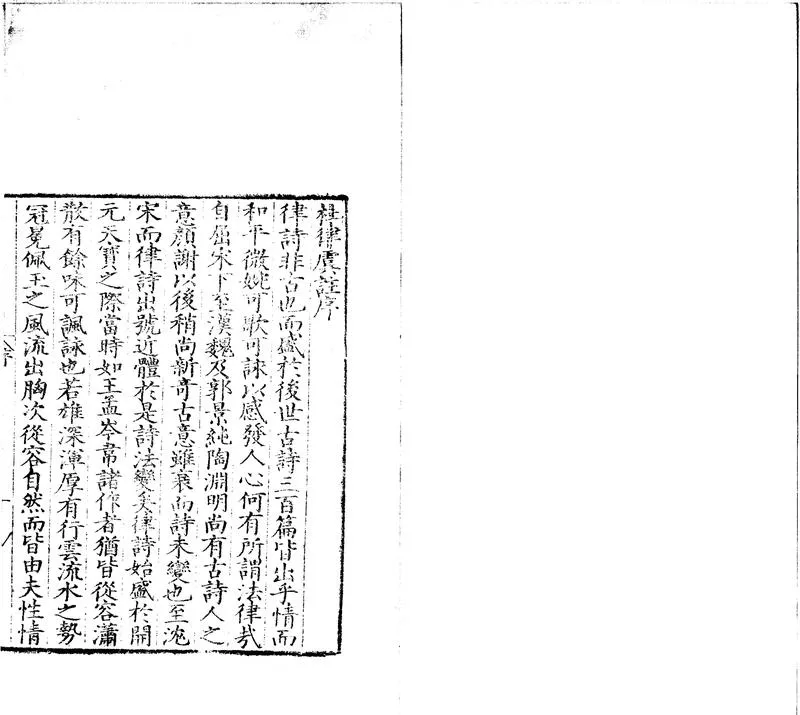 杜律虞註序
律詩非古也而盛於後世古詩三百篇皆出乎情而
和平微婉可歌可誦以感發人心何有所謂法律哉
自屈宋下至漢魏及郭景純陶淵明尚有古詩人之
意顏謝以後稍尚新奇古意雖衰而詩未變也至沈
宋而律詩出號近體於是詩法變矣律詩始盛於開
元天寶之際當時如王孟岑韋諸作者猶皆從容瀟
散有餘味可諷詠也若雄深渾厚有行雲流水之勢
冠冕佩玉之風流出胸次從容自然而皆由夫性情
序
一